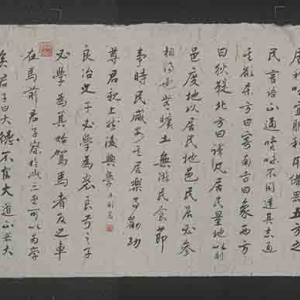 利用備器五方之
民言語不通嗜欲不同達其志
其欲東方曰寄南方曰象西方
曰狄鞮北方曰譯凡居民量地以制
邑度地以居民地邑民居必參
相得也無曠土無游民食節
事時民咸安其居樂事勸功
尊君親上然後興學
良冶之子必學為裘良弓之子
必學為箕始駕馬者反之車
在馬前君子察於此三者可以學
矣君子曰大德不官大道不器大